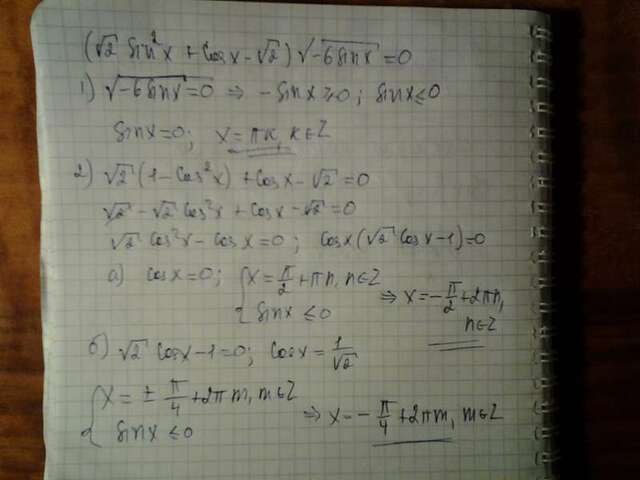 (√2 sin²x + cosx - √2) √-6sinx = 0
1) √-6sinx = 0 ⇒ -sinx ≥ 0; sinx ≤ 0
sinx = 0; x = πk, k∈Z
2) √2 (1 - cos²x) + cosx - √2 = 0
√2 - √2 cos²x + cosx - √2 = 0
√2 cos²x - cosx = 0; cosx(√2 cosx - 1) = 0
а) cosx = 0; { x = π/2 + πn, n∈Z
sinx ≤ 0 ⇒ x = -π/2 + 2πn,
n∈Z
б) √2 cosx - 1 = 0; cosx = 1/√2
{ x = ± π/4 + 2πm, m∈Z
sinx ≤ 0 ⇒ x = - π/4 + 2πm, m∈Z